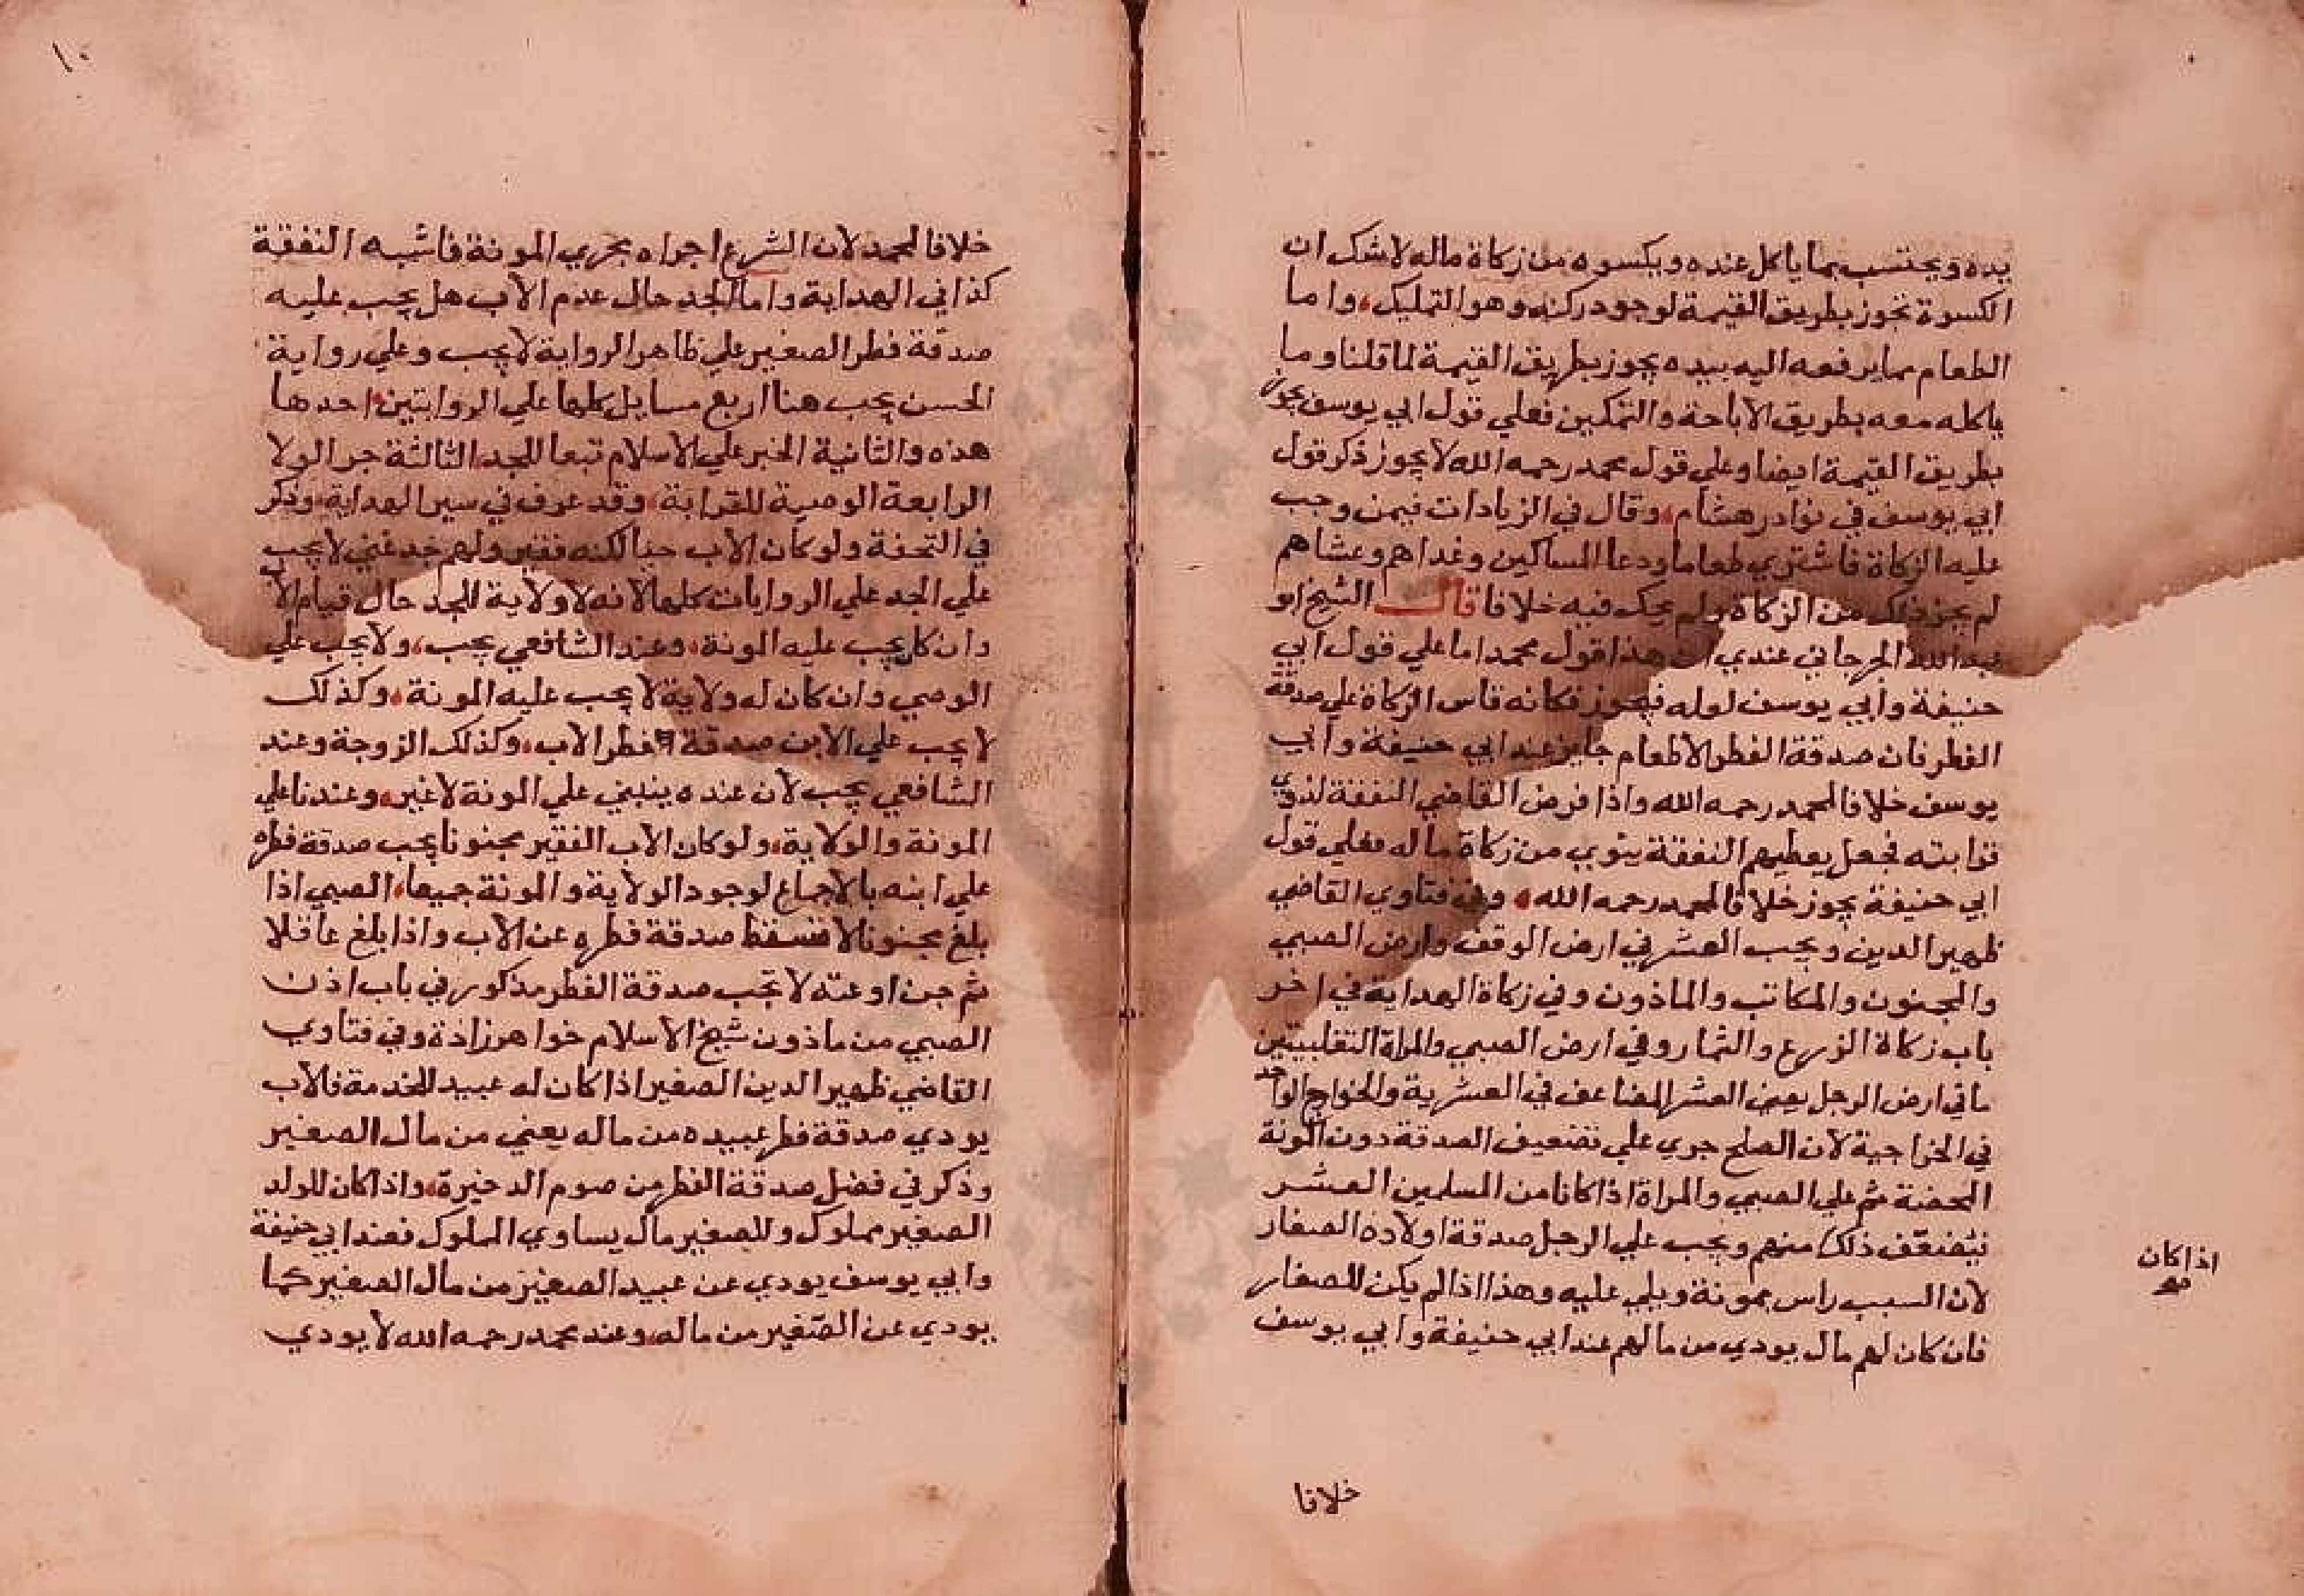 يده ويحتسب بما ياكل عنده ويكسوه من زكاة ماله لاشك ان
الكسوة تجوز بطريق القيمة لوجود ركنه وهو التمليك، واما
الطعام مما يرفعه اليه بيده يجوز بطريق القيمة لما قلنا وما
ياكله معه بطريق الاباحة والتمكين فعلي قول ابي يوسف يجوز
بطريق القيمة ايضا وعلي قول محمد رحمه الله لا يجوز ذكر قول
ابي يوسف في نوادر هشام، وقال في الزيادات فيمن وجب
عليه الزكاة فاشتري طعاما ودعا المساكين وغداهم وعشاهم
لم يجز ذلك من الزكاة ولم يحك فيه خلافا قال الشيخ ابو
عبد الله الجرجاني عندي ان هذا قول محمد اما علي قول ابي
حنيفة وابي يوسف لوله فيجوز فكانه قاس الزكاة علي صدقة
الفطر فان صدقة الفطر الاطعام جايز عند ابي حنيفة وابي
يوسف خلافا لمحمد رحمه الله واذا فرض القاضي النفقة لذوي
قرابته فجعل يعطيهم النفقة ينوي من زكاة ماله فعلي قول
ابي حنيفة يجوز خلافا لمحمد رحمه الله، وفي فتاوي القاضي
ظهير الدين ويجب العشر في ارض الوقف وارض الصبي
والمجنون والمكاتب والماذون وفي زكاة الهداية في اخر
باب زكاة الزرع والثمار وفي ارض الصبي والمراة التغلبيتين
ما في ارض الرجل يعني العشر المضاعف في العشرية والخراج الواحد
في الخراجية لان الصلح جري علي تضعيف الصدقة دون المونة
المحضة ثم علي الصبي والمراة اذا كانا من المسلمين العشر
فيضعف ذلك منهم ويجب علي الرجل صدقة اولاده الصغار
لان السبب راس يمونة ويلي عليه وهذا اذا لم يكن للصغار
فان كان لهم مال يودي من مالهم عند ابي حنيفة وابي يوسف
اذا كان
خلافا
١٠
خلافا لمحمد لان الشرع اجراه مجري المونة فاشبه النفقة
كذا في الهداية واما الجد حال عدم الاب هل يجب عليه
صدقة فطر الصغير علي ظاهر الرواية لا يجب وعلي رواية
الحسن يجب هنا اربع مسايل كلها علي الروايتين، احدها
هذه والثانية الخبر علي الاسلام تبعا للجد الثالثة جر الولا
الرابعة الوصية للقرابة، وقد عرف في سير الهداية، وذكر
في التحفة ولو كان الاب حيا لكنه فقير ولهم جد غني لا يجب
علي الجد علي الروايات كلها لانه لا ولاية للجد حال قيام الا
وان كان يجب عليه المونة، وعند الشافعي يجب، ولا يجب علي
الوصي وان كان له ولاية لا يجب عليه المونة، وكذلك
لا يجب علي الابن صدقة فطر الاب، وكذلك الزوجة وعند
الشافعي يجب لان عنده ينبني علي المونة لا غير، وعندنا علي
المونة والولاية، ولو كان الاب الفقير مجنونا يجب صدقة فطره
علي ابنه بالاجماع لوجود الولاية والمونة جميعا، الصبي اذا
بلغ مجنونا لا تسقط صدقة فطره عن الاب واذا بلغ عاقلا
ثم جن او عته لا تجب صدقة الفطر مذكور في باب اذن
الصبي من ماذون شيخ الاسلام خواهرزادة وفي فتاوي
القاضي ظهير الدين الصغير اذا كان له عبيد للخدمة فالاب
يودي صدقة فطر عبيده من ماله يعني من مال الصغير
وذكر في فضل صدقة الفطر من صوم الدخيرة، واذا كان للولد
الصغير مملوك وللصغير مال يساوي المملوك فعند ابي حنيفة
وابي يوسف يودي عن عبيد الصغير من مال الصغير كما
يودي عن الصغير من ماله، وعند محمد رحمه الله لا يودي